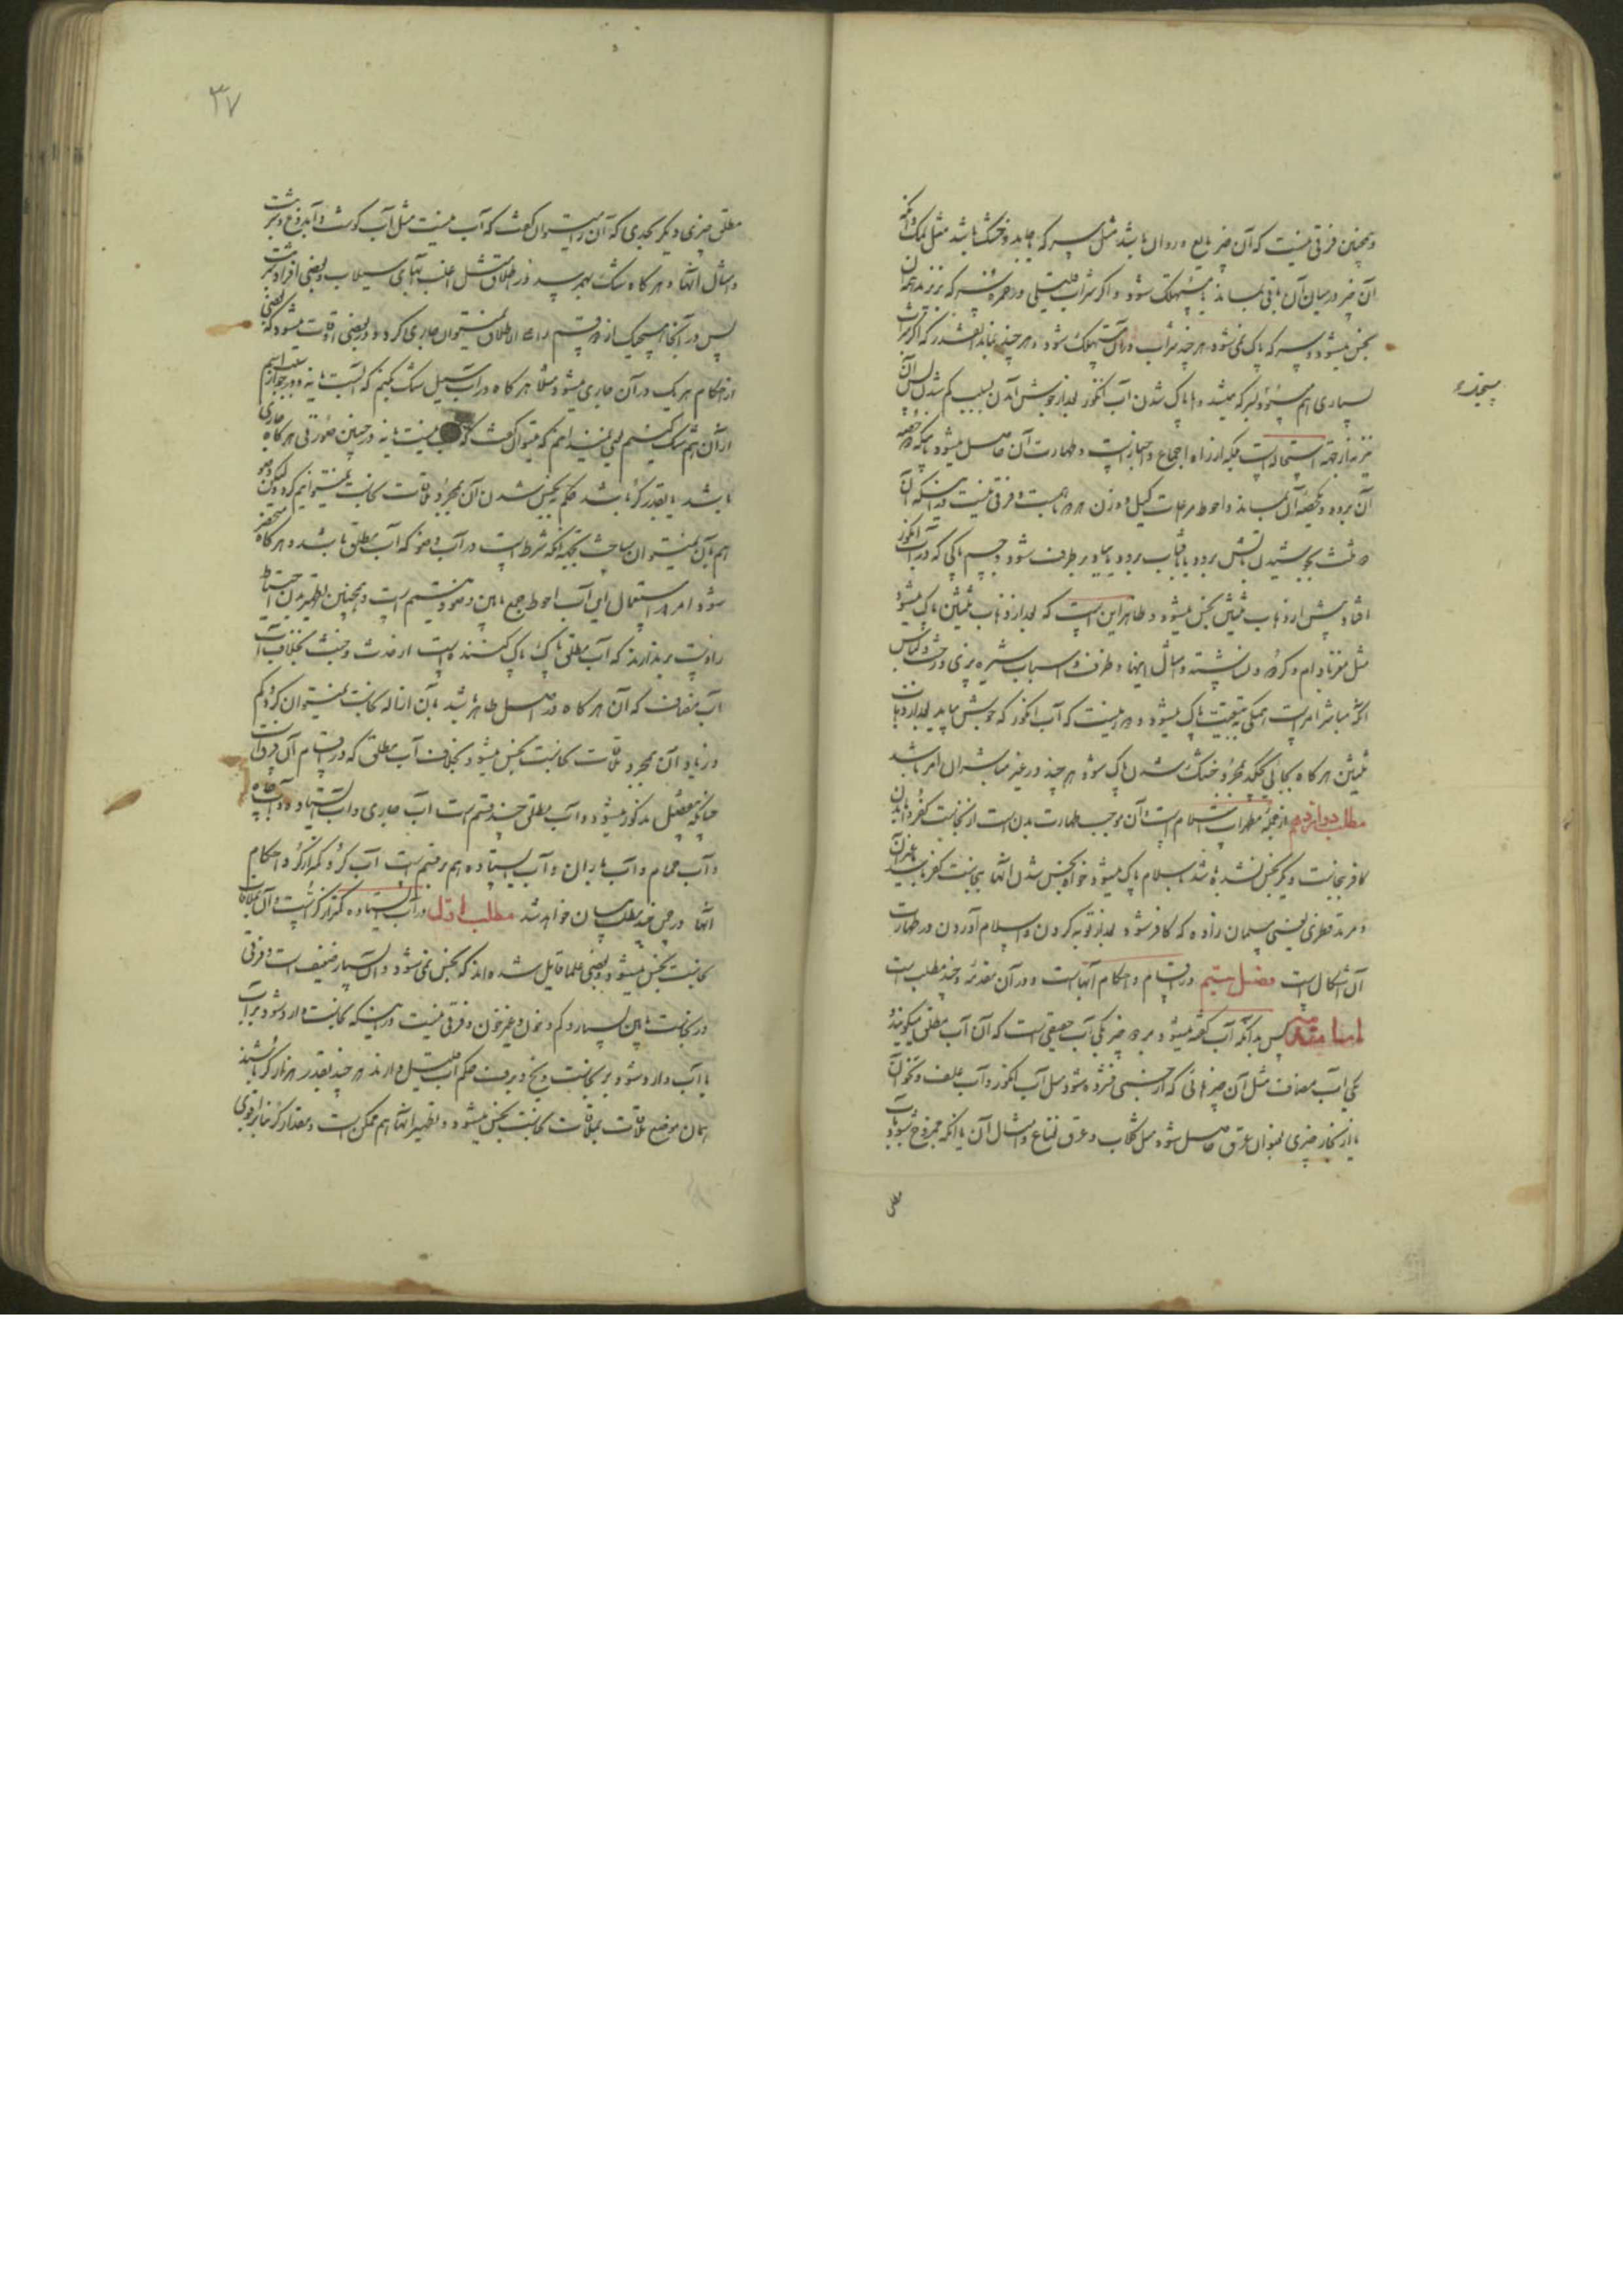 و همچنین فرقی نیست که آن چیز مایع و روان باشد مثل سرکه یا جامد و خشک باشد مثل نمک و آنکه
آن چیز در میان آن باقی بماند یا مستهلک شود و اگر شراب قلیلی در خمره سرکه بریزند همه آن
نجس میشود و سرکه پاک نمی شود هر چند شراب در آن مستهلک شود و هر چند بماند آنقدر که اگر شراب
بسیاری هم میبود سرکه میشد و اما پاک شدن آب انگور بعد از جوش آمدن بسبب کم شدن ثلثان آن
نیز نه از جهة استحاله است بلکه از راه اجماع و اخبار است و طهارت آن حاصل میشود باینکه دو حصه
آن برود و یکحصه آن بماند و احوط مرعات کیل و وزن هر دو است و فرقی نیست در اینکه آن
دو ثلث بجوشیدن بآتش برود یا بآفتاب برود یا بباد برطرف شود و جسم پاکی که در آب انگور
افتاد پیش از ذهاب ثلثین نجس میشود و ظاهر این است که بعد از ذهاب ثلثین پاک میشود
مثل مغز بادام و گردو و نشاسته و امثال اینها و ظرف و اسباب شیره پزی و رخت و لباس
آنکه مباشر امر است همگی به تبعیت پاک میشود و دور نیست که آب انگور که جوش بیاید بعد از ذهاب
ثلثین هر گاه بجائی بچکد بمجرد خشک شدن پاک شود هر چند در غیر مباشران امر باشد
مطلب دوازدهم از جمله مطهرات اسلام است و آن موجب طهارت بدن است از نجاست کفر و اگر بدن
کافر بنجاست دیگر نجس نشده باشد باسلام پاک میشود خواه نجس شدن آنها بنجاست کفر باشد یا غیر آن
و مرتد فطری یعنی مسلمان زاده که کافر شود بعد از توبه کردن و اسلام آوردن در طهارت
آن اشکال است فصل بیستم در اقسام و احکام آبها است و در آن مقدمه و چند مطلب است
اما مقدمه پس بدانکه آب گفته میشود بر دو چیز یکی آب حقیقی است که آن را آب مطلق میگویند و
یکی آب مضاف مثل آن چیزهائی که از جنسی فشرده شود مثل آب انگور و آب علف و نحو آن
یا از بخار چیزی بعنوان عرق حاصل شود مثل گلاب و عرق نعناع و امثال آن یا آنکه ممزوج شود با آب
مطلق
۳۷
مطلق چیزی دیگر بحدی که آن را میتوان گفت که آب نیست مثل آب گوشت و آب دوغ و شربت
و امثال آنها و هر گاه شک بهم رسید در اطلاق مثل اغلب آبهای سیلاب و بعضی افراد شربت
پس در آنجا هیچیک از دو قسم را علی الاطلاق نمیتوان جاری کرد و در بعضی اوقات میشود که بعضی
از احکام هر یک در آن جاری میشود مثلا هر گاه در آب سیل شک کنیم که آب است یا نه و در جواز تیمم
از آن هم شک کنیم یعنی نمیدانیم که میتوان گفت که آب نیست یا نه در چنین صورتی هر گاه جاری
باشد یا بقدر کر باشد حکم به نجس شدن آن بمجرد ملاقات نجاست نمیتوانیم کرد و لیکن وضو
هم بآن نمیتوان ساخت بجهة آنکه شرط است در آب وضو که آب مطلق باشد و هر گاه منحصر
شود امر در استعمال این آب احوط جمع مابین وضو و تیمم است و همچنین تطهیر بدن احتیاط
را دست برندارند که آب مطلق پاک و پاک کننده است از حدث و خبث بخلاف آب
آب مضاف که آن هر گاه در اصل طاهر باشد بآن ازاله نجاست نمیتوان کرد و کم
و زیاد آن بمجرد ملاقات نجاست نجس میشود بخلاف آب مطلق که در اقسام آن فرق است
چنانکه مفصل مذکور میشود و آب مطلق چند قسم است آب جاری و آب ایستاده و آب چاه
و آب حمام و آب باران و آب ایستاده هم بر دو قسم است آب کر و کمتر از کر و احکام
آنها در ضمن چند مطلب بیان خواهد شد مطلب اول در آب ایستاده کمتر از کر است و آن بملاقات
نجاست نجس میشود و بعضی علما قایل شده اند که نجس نمی شود و آن بسیار ضعیف است و فرقی
در نجاست مابین بسیار و کم و خون و غیر خون و فرقی نیست در اینکه نجاست وارد شود بر آب
یا آب وارد شود بر نجاست و یخ و برف حکم آب قلیل دارند هر چند بقدر هزار کر باشند
همان موضع ملاقات بملاقات نجاست نجس میشود و تطهیر آنها هم ممکن است و مقدار کر بنا بر اقوی